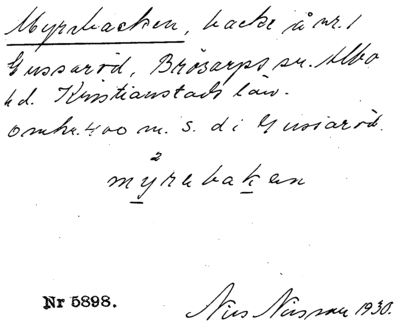 Myrebacken, backe å nr. 1
Gussaröd, Brösarps sn. Albo
hd. Kristianstads län.
Omkr. 400 m. S. di Gussaröd.
2
myrebaken
Nr 5898.
Nils Nilsson 1930.